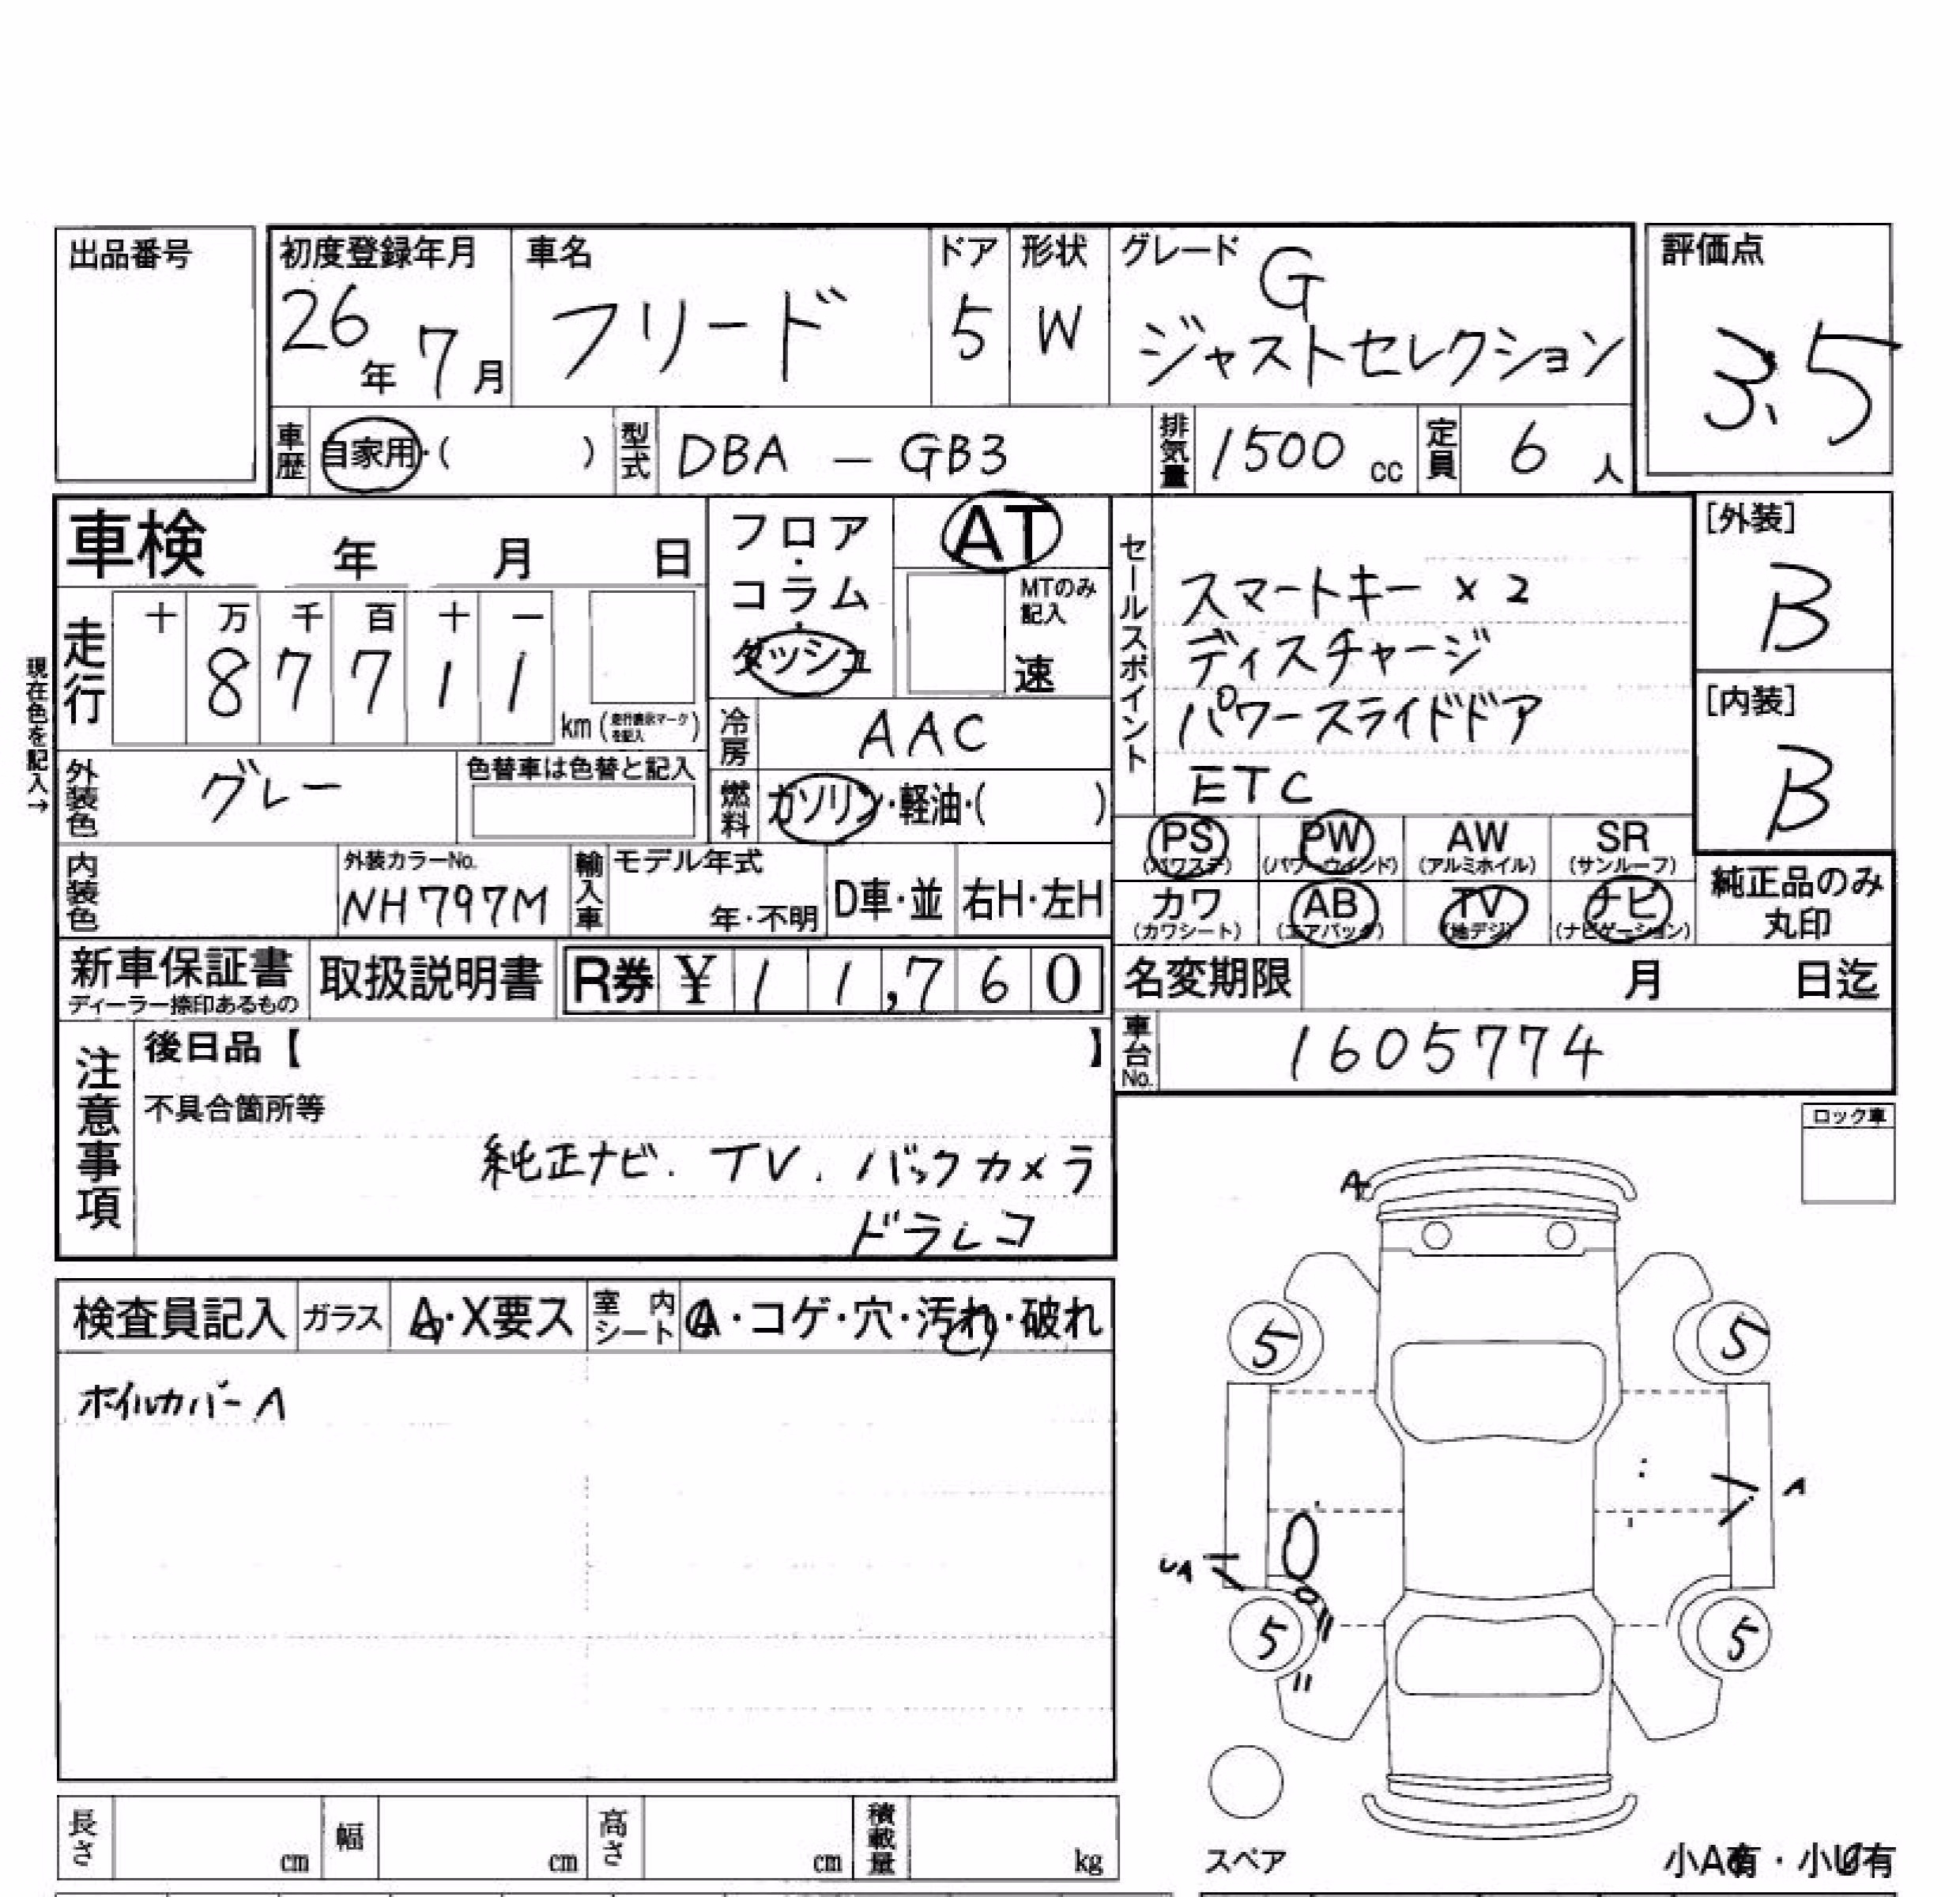 出品番号
初度登録年月 車名 ドア 形状 グレード 評価点
26年 7月 フリード 5 W G
ジャストセレクション 3.5
車歴 自家用・( ) 型式 DBA - GB3 排気量 1500 cc 定員 6 人
車検 年 月 日
フロア・コラム・ダッシュ
AT
MTのみ記入 速
セールスポイント
スマートキー ×2
ディスチャージ
パワースライドドア
ETC
[外装] B
[内装] B
現在色を記入→
走行 十 万 千 百 十 一
8 7 7 1 1 km (走行表示マークを記入)
冷房 AAC
外装色 グレー 色替車は色替と記入
燃料 ガソリン・軽油・( )
PS (パワステ) PW (パワーウインド) AW (アルミホイル) SR (サンルーフ)
カワ (カワシート) AB (エアバック) TV (地デジ) ナビ (ナビゲーション)
純正品のみ丸印
内装色 外装カラーNo. NH797M 輸入車 モデル年式 年・不明 D車・並 右H・左H
新車保証書 ディーラー捺印あるもの 取扱説明書 R券 ¥ 1 1,7 6 0
名変期限 月 日迄
車台No. 1605774
注意事項
後日品【 】
不具合箇所等
純正ナビ. TV. バックカメラ
ドラレコ
ロック車
検査員記入 ガラス A・X要ス 室内シート A・コゲ・穴・汚れ・破れ
ホイルカバーA
A
5 5
A
UA
5 5
スペア
小A有・小U有
長さ cm 幅 cm 高さ cm 積載量 kg